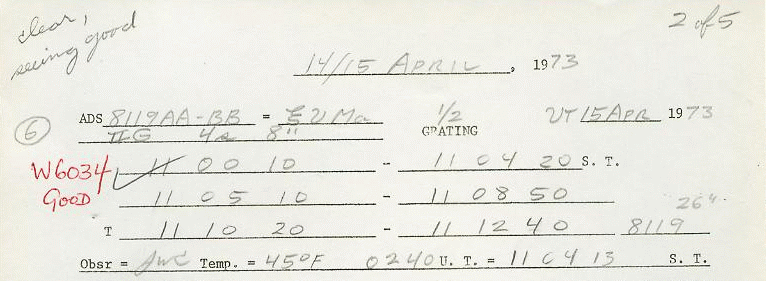 clear,
seeing good
2 of 5
14/15 APRIL, 1973
6 ADS 8119AA-BB = ξ UMa 1/2 GRATING UT 15 APR 1973
IIG 4a 8"
W6034 11 00 10 - 11 04 20 S. T.
GOOD 11 05 10 - 11 08 50
T 11 10 20 - 11 12 40 8119
Obsr = Temp. = 45°F 0240 U. T. = 11 04 13 S. T.